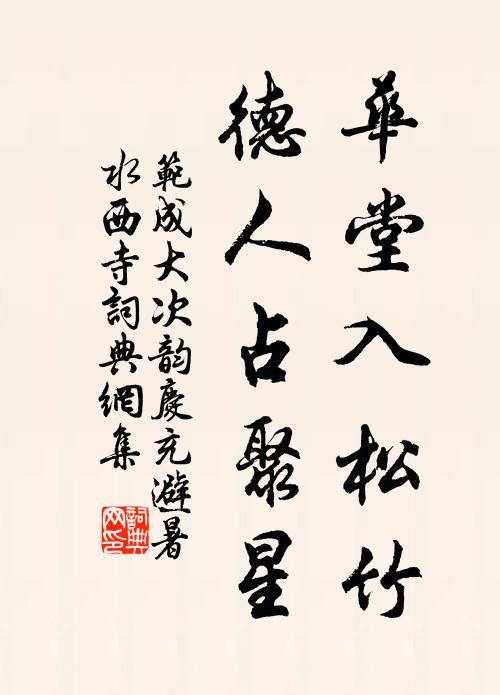 華堂入松竹
德人占聚星
範成大次韵慶充避暑
水西寺詞典網集
詞典
网印